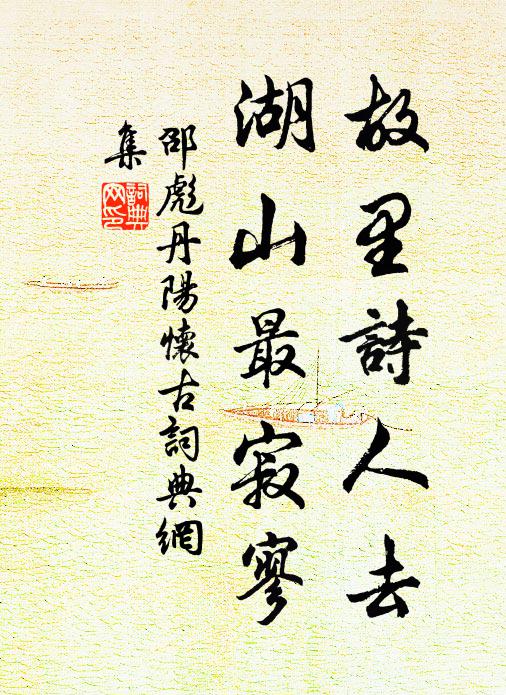 故里詩人去
湖山最寂寥
邵彪丹陽懷古詞典網
集
詞典
网印